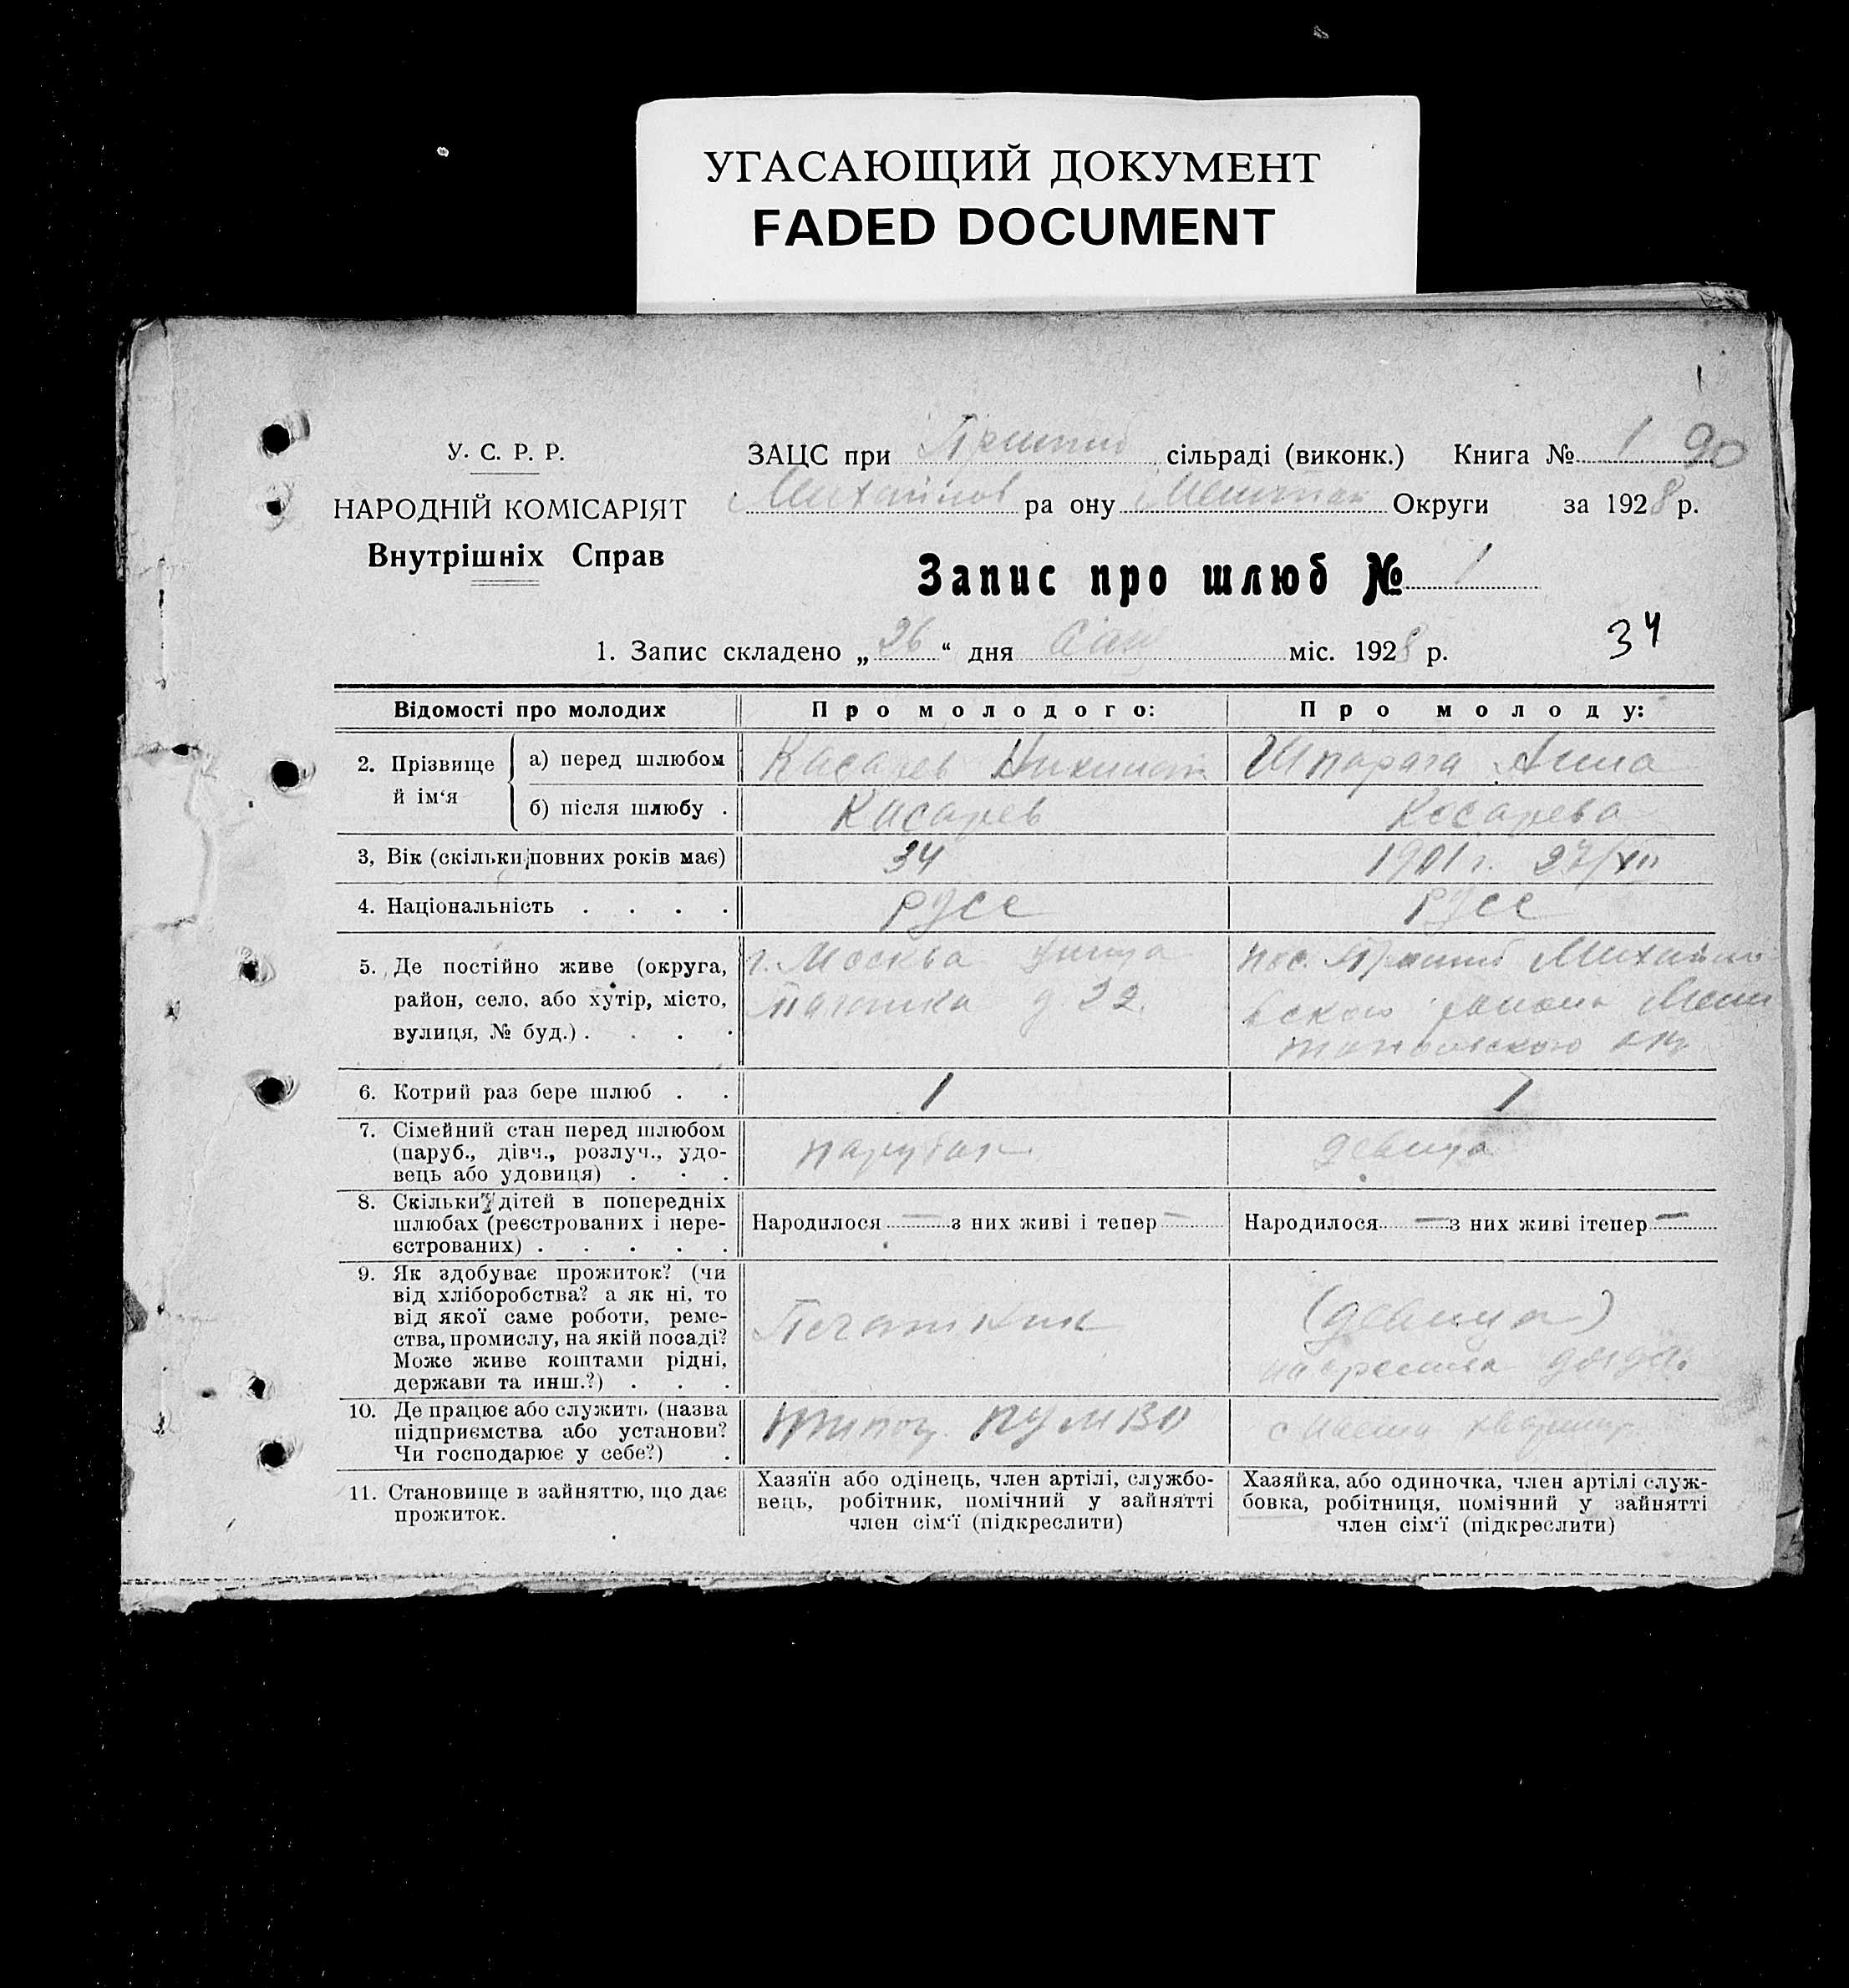 УГАСАЮЩИЙ ДОКУМЕНТ
FADED DOCUMENT
У. С. Р. Р.
НАРОДНІЙ КОМІСАРІЯТ
Внутрішніх Справ
ЗАЦС при Пришиб сільраді (виконк.) Книга № 1 90
Михайлов ра ону Мелитоп Округи за 1928 р.
Запис про шлюб № 1
1. Запис складено „26“ дня міс. 1928 р.
34
Відомості про молодих
Про молодого:
Про молоду:
2. Прізвище й ім‘я
а) перед шлюбом
Касарев
Шпарага Анна
б) після шлюбу .
Касарев
Косарева
3, Вік (скільки повних років має)
34
1901 г. 27/XII
4. Національність . . . .
русс
русс
5. Де постійно живе (округа,
район, село, або хутір, місто,
вулиця, № буд.) . . . .
г. Москва улица
д 32.
пос. Пришиб Михайло
вского района Мели
топольского окр
6. Котрий раз бере шлюб . .
1
1
7. Сімейний стан перед шлюбом
(паруб., дівч., розлуч., удо-
вець або удовиця) . . .
парубок
девица
8. Скільки дітей в попередніх
шлюбах (реєстрованих і пере-
єстрованих) . . . . .
Народилося — з них живі і тепер —
Народилося — з них живі ітепер —
9. Як здобуває прожиток? (чи
від хліборобства? а як ні, то
від якої саме роботи, реме-
ства, промислу, на якій посаді?
Може живе коштами рідні,
держави та инш.?) . . .
Печатник
(девица)
10. Де працює або служить (назва
підприємства або установи?
Чи господарює у себе?) .
типог. ПУ МВО
11. Становище в зайняттю, що дає
прожиток.
Хазяїн або одінець, член артілі, службо-
вець, робітник, помічний у зайнятті
член сім‘ї (підкреслити)
Хазяйка, або одиночка, член артілі служ-
бовка, робітниця, помічний у зайнятті
член сім‘ї (підкреслити)